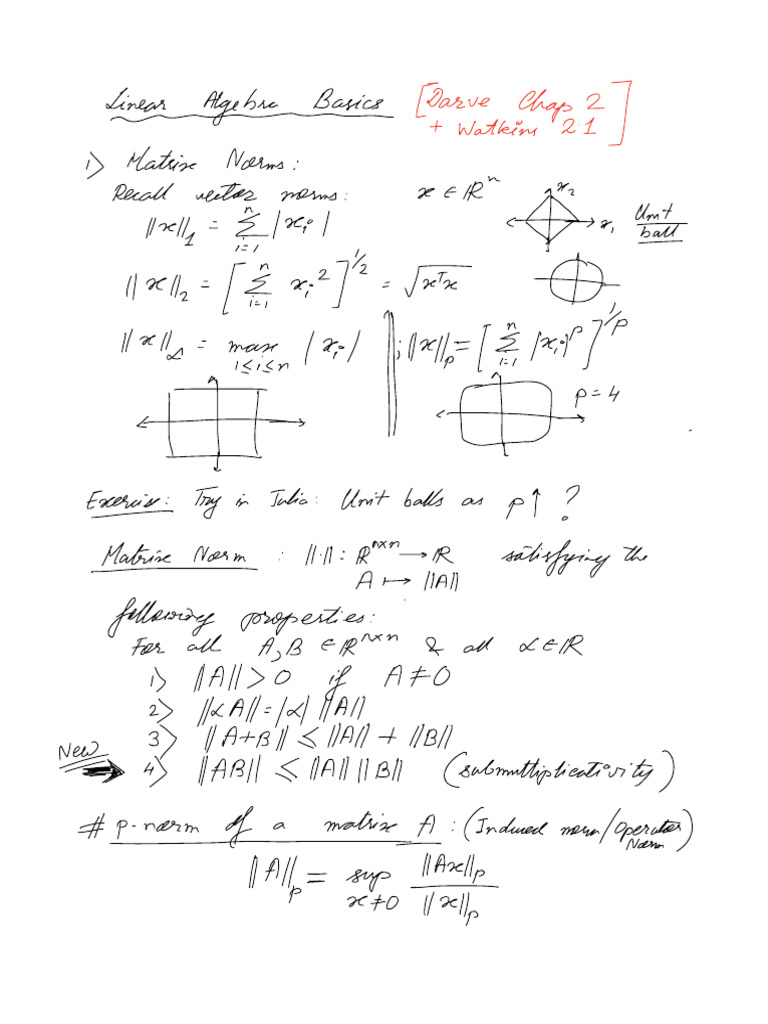 Linear Algebra Basics [Darve Chap 2
+ Watkins 2.1]
1) Matrix Norms:
Recall vector norms: x ∈ ℝⁿ
‖x‖₁ = Σᵢ₌₁ⁿ |xᵢ| x₂ x₁ Unit
ball
‖x‖₂ = [Σᵢ₌₁ⁿ xᵢ²]^{1/2} = √(xᵀx)
‖x‖_∞ = max_{1≤i≤n} |xᵢ| ; ‖x‖_p = [Σᵢ₌₁ⁿ |xᵢ|^p]^{1/p}
p = 4
Exercise: Try in Julia: Unit balls as p↑ ?
Matrix Norm : ‖·‖ : ℝ^{n×n} → ℝ satisfying the
A ↦ ‖A‖
following properties:
For all A, B ∈ ℝ^{n×n} & all α ∈ ℝ
1) ‖A‖ > 0 if A ≠ 0
2) ‖αA‖ = |α| ‖A‖
3) ‖A+B‖ ≤ ‖A‖ + ‖B‖
New 4) ‖AB‖ ≤ ‖A‖ ‖B‖ (submultiplicativity)
# p-norm of a matrix A : (Induced norm/Operator
Norm)
‖A‖_p = sup_{x≠0} ‖Ax‖_p / ‖x‖_p